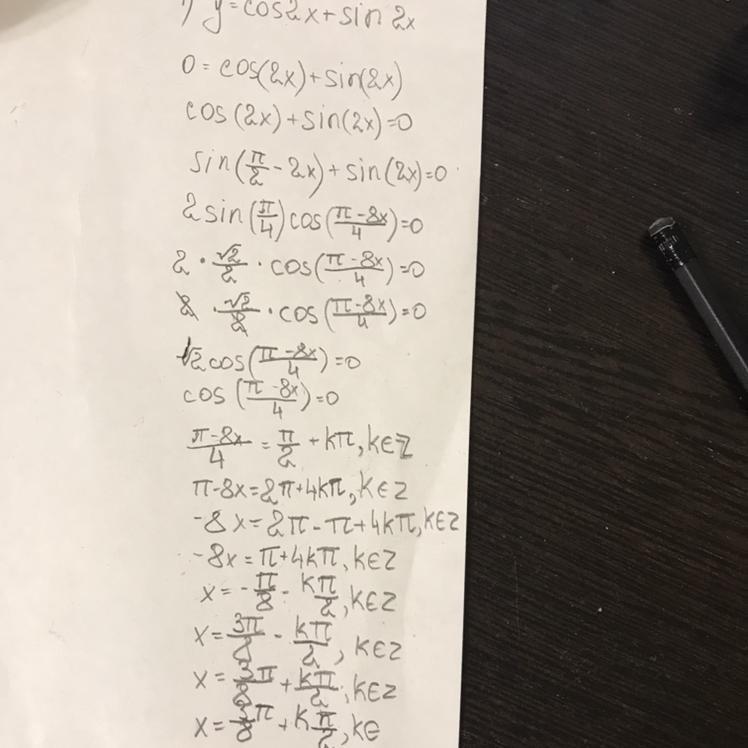 ) y=cos2x+sin 2x
0=cos(2x)+sin(2x)
cos(2x)+sin(2x)=0
sin(π/2-2x)+sin(2x)=0
2sin(π/4)cos(π-8x/4)=0
2·√2/2·cos(π-8x/4)=0
2·√2/2·cos(π-8x/4)=0
√2cos(π-8x/4)=0
cos(π-8x/4)=0
π-8x/4=π/2+kπ,k∈Z
π-8x=2π+4kπ,k∈Z
-8x=2π-π+4kπ,k∈Z
-8x=π+4kπ,k∈Z
x=-π/8-kπ/2,k∈Z
x=3π/8-kπ/2,k∈Z
x=3π/8+kπ/2,k∈Z
x=3/8π+kπ/2,k∈